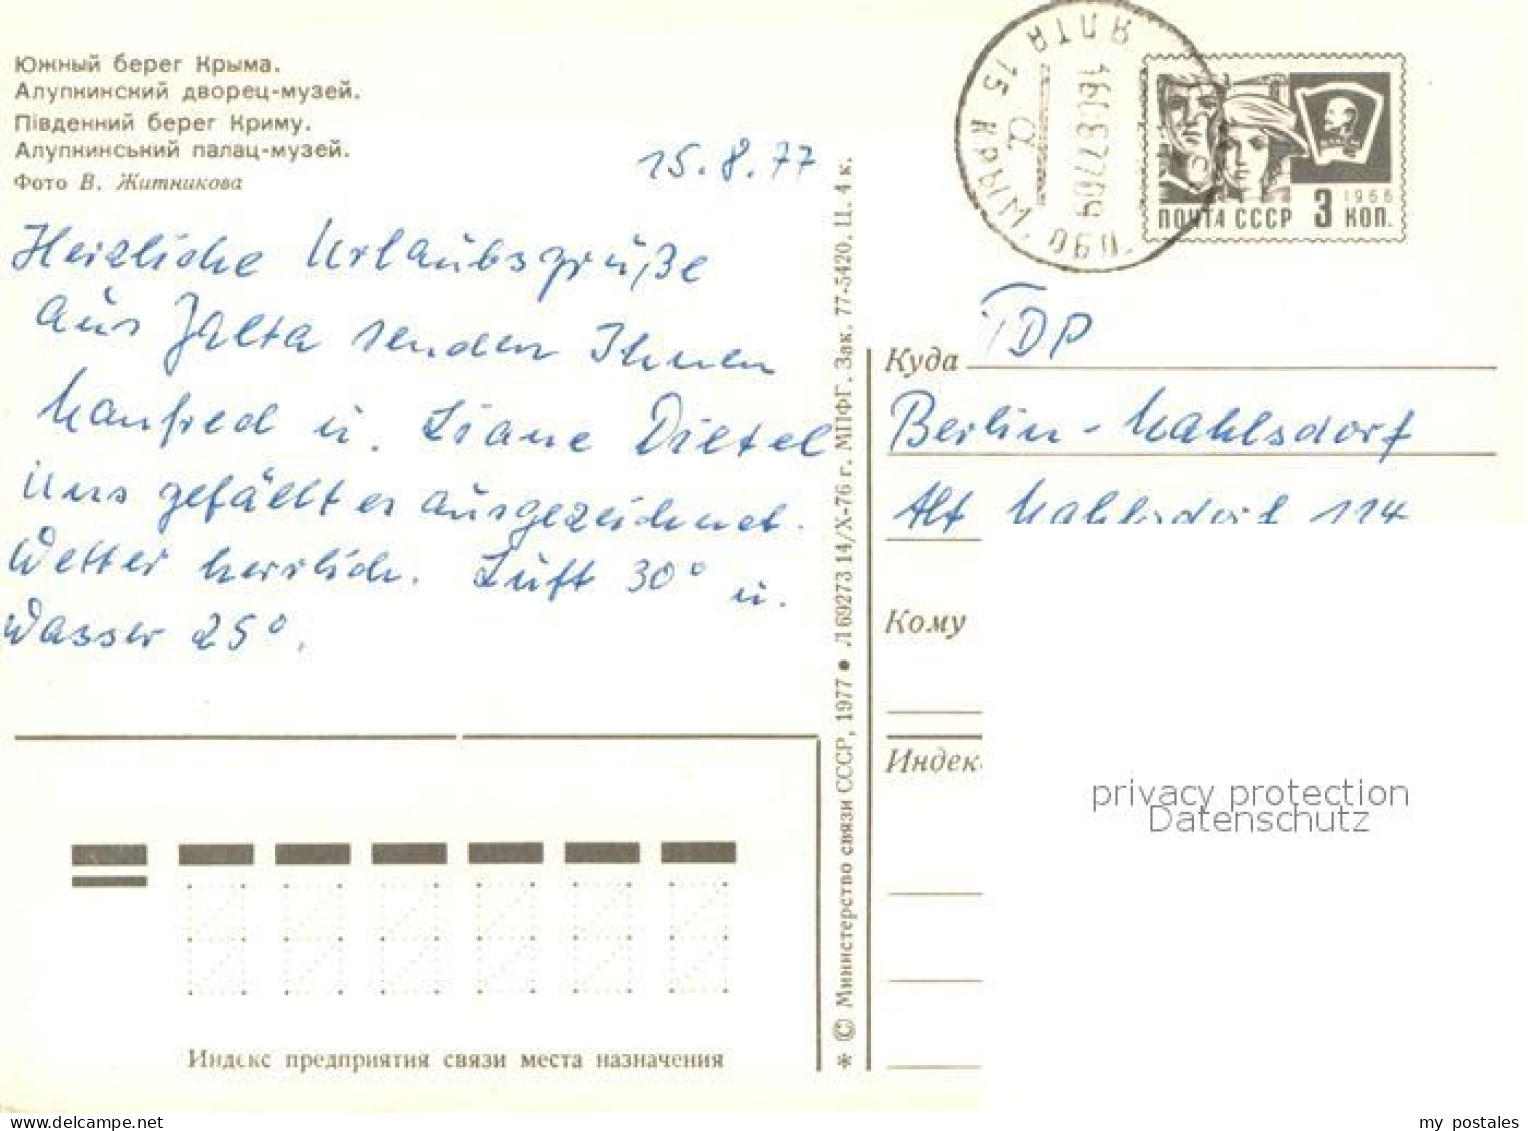 Южный берег Крыма.
Алупкинский дворец-музей.
Південний берег Криму.
Алупкинський палац-музей.
Фото В. Житникова
15.8.77
Herzliche Urlaubsgrüße
aus Jalta senden Ihnen
Manfred u. Liane Dietel
Uns gefällt es ausgezeichnet.
Wetter herrlich. Luft 30° u.
Wasser 25°.
Индекс предприятия связи места назначения
* © Министерство связи СССР, 1977 ● Л 69273 14/X-76 г. МПФГ. Зак. 77-5420. Ц. 4 к.
ЯЛТА
15 КРЫМ
ПОЧТА СССР 3 КОП.
1966
TDP
Куда
Berlin-Mahlsdorf
Alt Mahlsdorf 114
Кому
Индек
privacy protection
Datenschutz
my postales